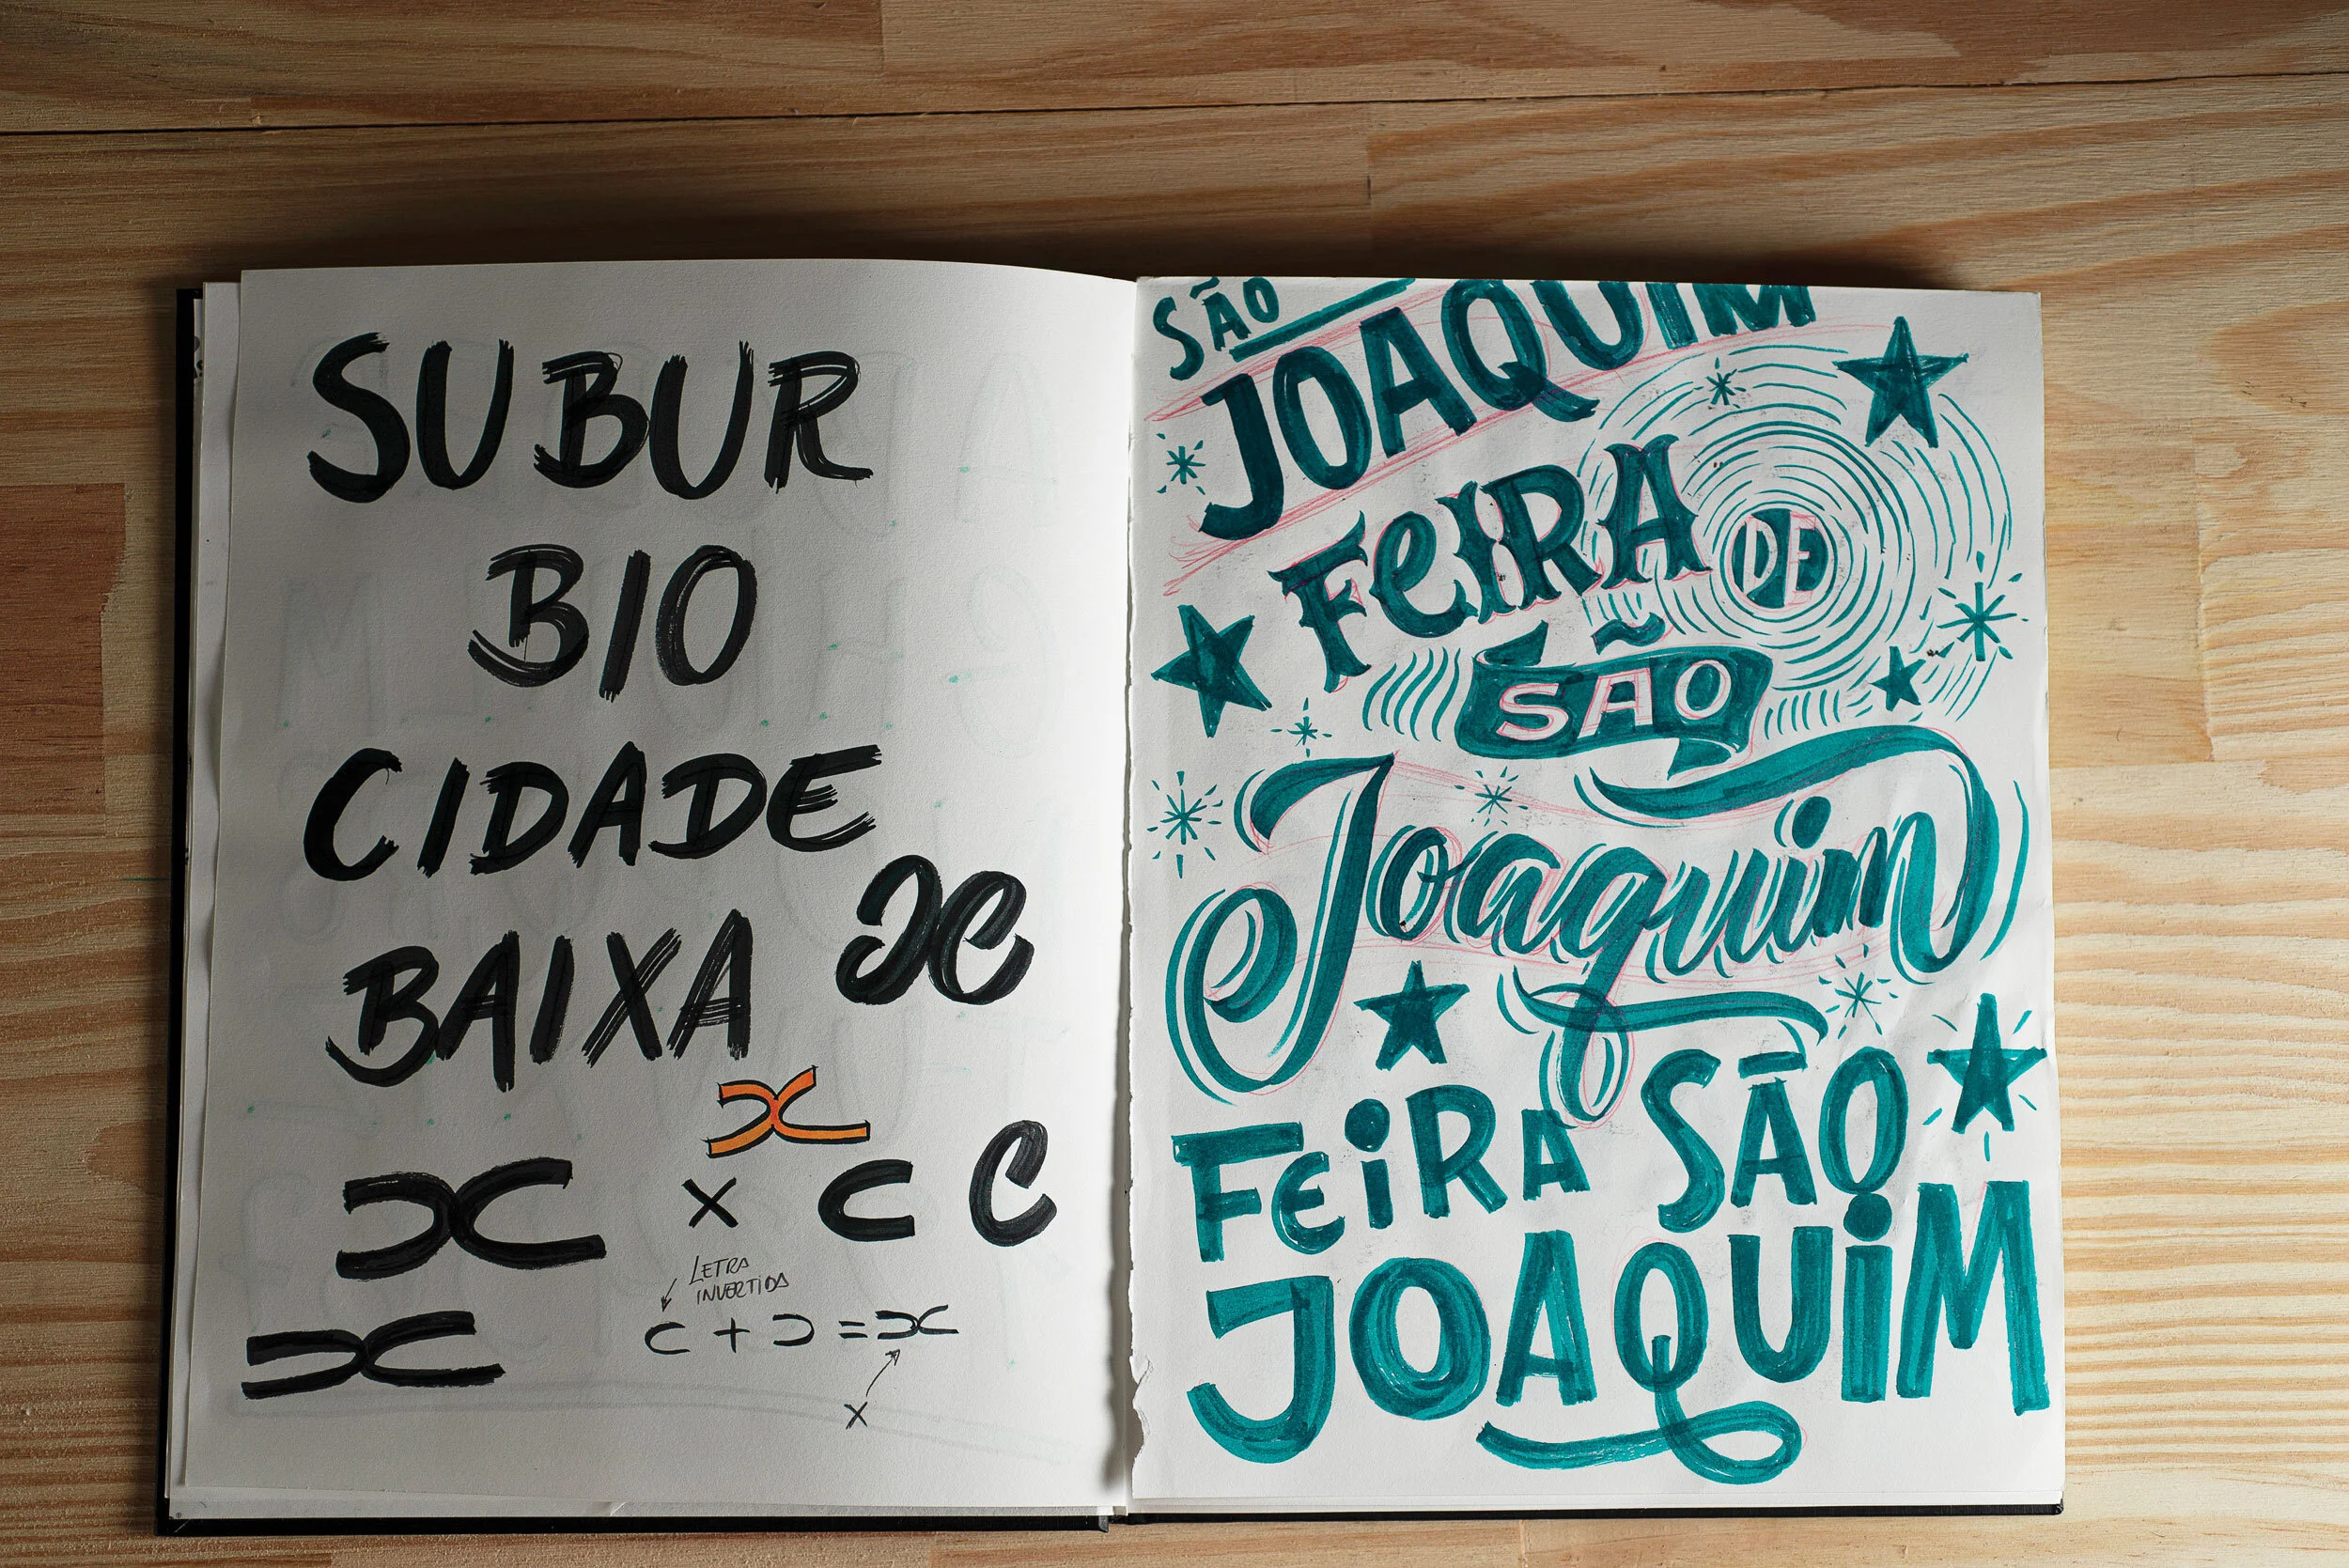 SUBUR
BIO
CIDADE
BAIXA
x
x
x c C
LETRA
INVERTIDA
x
c + ɔ = x
x
SÃO
JOAQUIM
FeIRA DE
SÃO
Joaquim
FeiRA SÃO
JOAQUiM